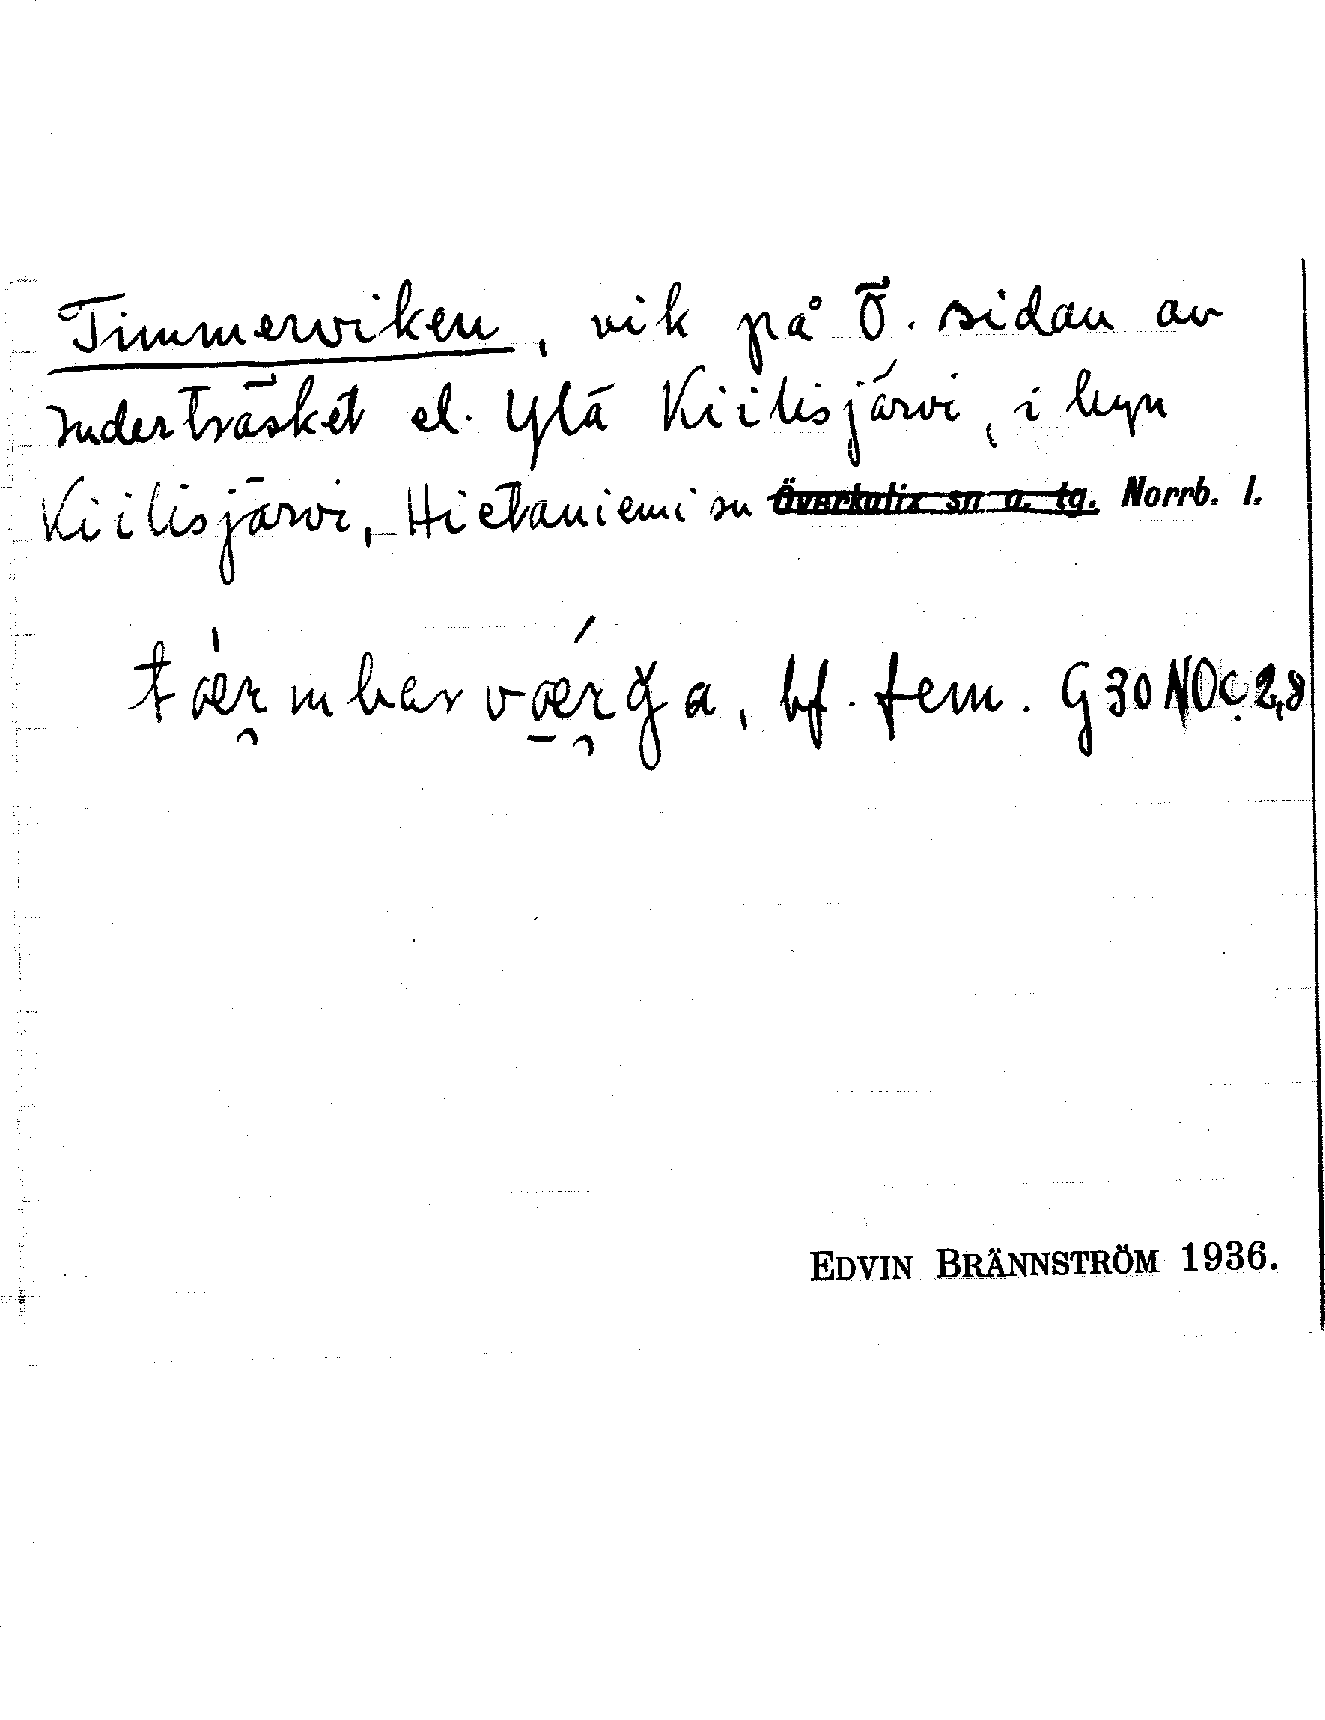 Timmerviken, vik på Ö. sidan av
Inderträsket el. Ylä Kiilisjärvi, i byn
Kiilisjärvi, Hietaniemi sn Överkalix sn o. tg. Norrb. l.
bf. fem. G 30 NOc 2,8
EDVIN BRÄNNSTRÖM 1936.